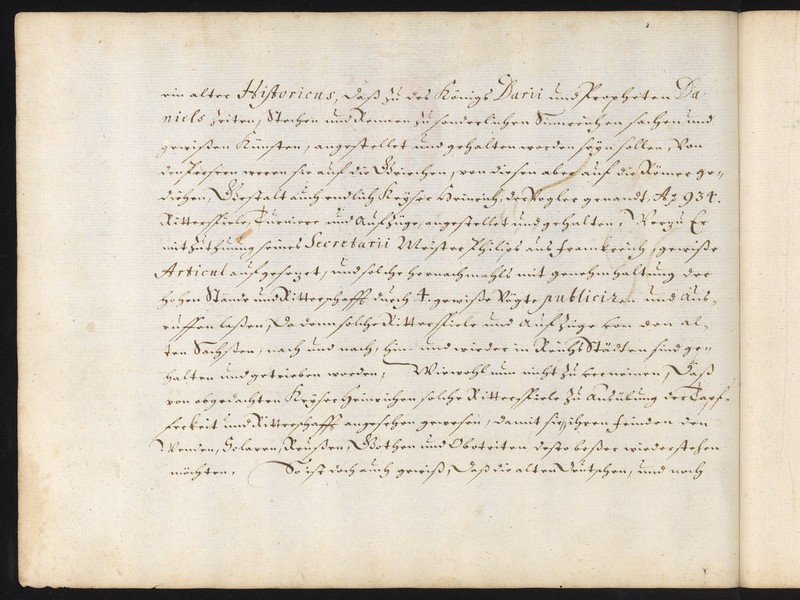 ein alter Historicus, daß zu des Königs Darii und Propheten Da-
niels Zeiten, Stechen und Rennen zu sonderlichen Sinnreichen sachen und
gewißen Künsten, angestellet und gehalten worden seÿn sollen, Von
denen weren sie auf die Griechen, von diesen aber auf die Römer ge-
diehen, Gestalt auch endlich Keÿser Heinrich, der Vogler genandt, Aō 934.
Ritterspiele, Turniere und Aufzüge, angestellet und gehalten, Worzu Er
mit Zuthuung seines Secretarii Meister Philips aus Franckreich, gewiße
Articul aufgesezet, und solche hernachmahls mit genehmhaltung der
hohen Stände und Ritterschafft durch 4. gewiße Vögte publiciren und Aus-
ruffen laßen, Da denn solche Ritterspiele und Aufzüge von den al-
ten Sachßen, nach und nach, hin und wieder in Reichs Städten sind ge-
halten und getrieben worden, Wiewohl nun nicht zu verneinen, Daß
von obgedachten Keÿser Heinrichen solche Ritterspiele zu Ausübung der Tapf-
ferkeit und Ritterschafft angesehen gewesen, damit sie ihren feinden den
Wenden, Sclaven, Reußen, Gothen und Obotriten desto beßer wiederstehen
möchten, So ist doch auch gewiß, Daß die alten Deutschen, und noch